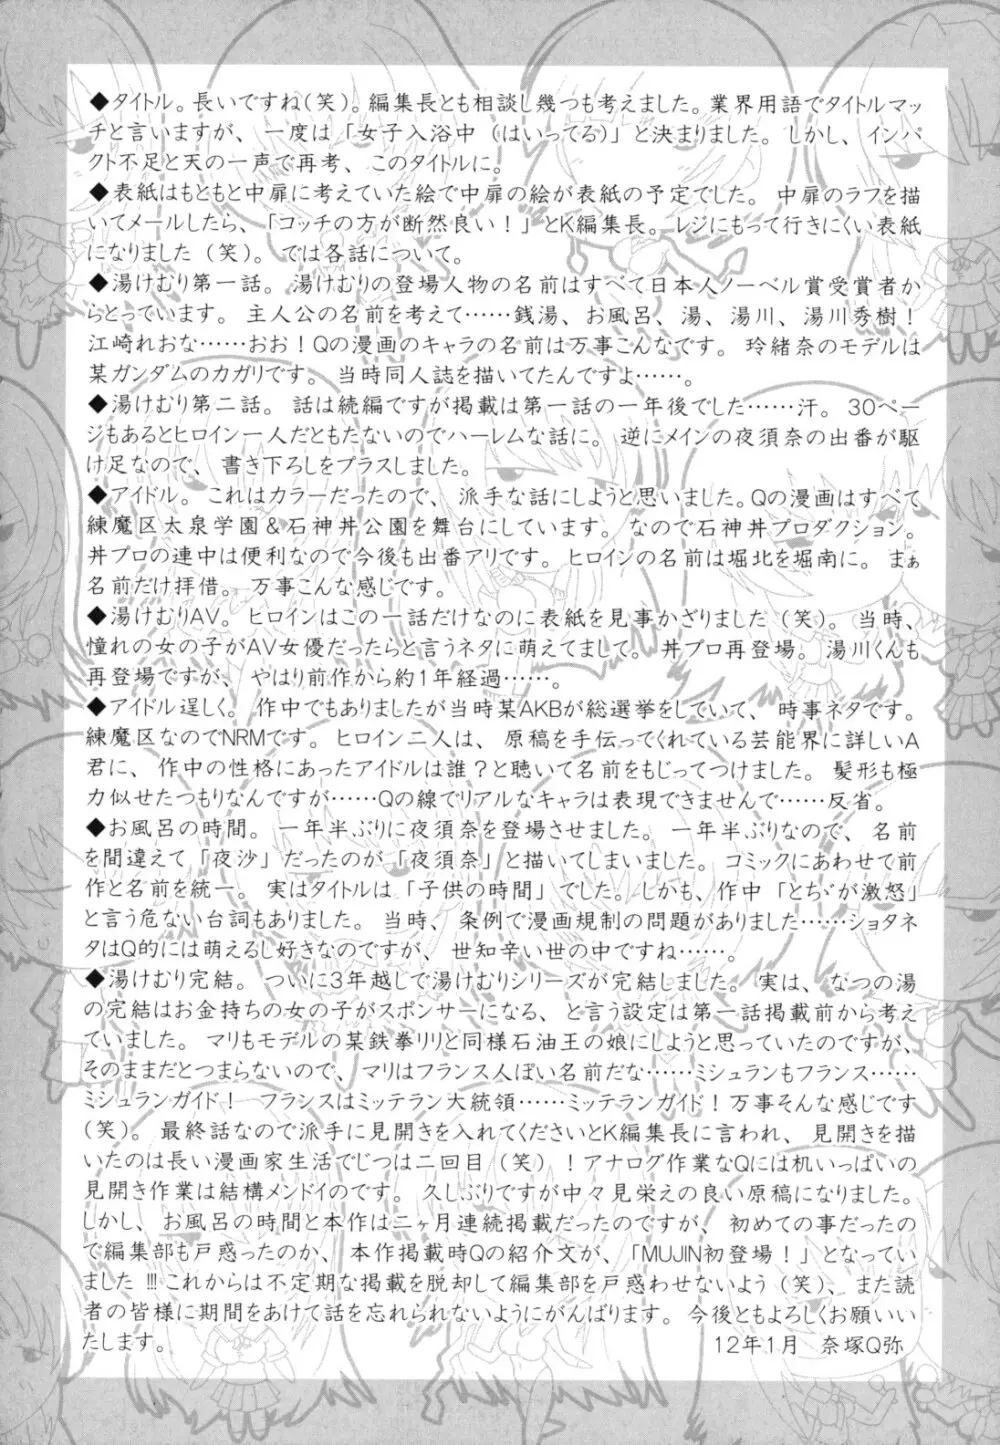 ◆タイトル。長いですね(笑)。編集長とも相談し幾つも考えました。業界用語でタイトルマッ
チと言いますが、一度は「女子入浴中(はいってる)」と決まりました。しかし、インパ
クト不足と天の一声で再考、このタイトルに。
◆表紙はもともと中扉に考えていた絵で中扉の絵が表紙の予定でした。中扉のラフを描
いてメールしたら、「コッチの方が断然良い!」とK編集長。レジにもって行きにくい表紙
になりました(笑)。では各話について。
◆湯けむり第一話。湯けむりの登場人物の名前はすべて日本人ノーベル賞受賞者か
らとっています。主人公の名前を考えて……銭湯、お風呂、湯、湯川、湯川秀樹!
江崎れおな……おお!Qの漫画のキャラの名前は万事こんなです。玲緒奈のモデルは
某ガンダムのカガリです。当時同人誌を描いてたんですよ……。
◆湯けむり第二話。話は続編ですが掲載は第一話の一年後でした……汗。30ペー
ジもあるとヒロイン一人だともたないのでハーレムな話に。逆にメインの夜須奈の出番が駆
け足なので、書き下ろしをプラスしました。
◆アイドル。これはカラーだったので、派手な話にしようと思いました。Qの漫画はすべて
練魔区大泉学園&石神丼公園を舞台にしています。なので石神丼プロダクション。
丼プロの連中は便利なので今後も出番アリです。ヒロインの名前は堀北を堀南に。まぁ
名前だけ拝借。万事こんな感じです。
◆湯けむりAV。ヒロインはこの一話だけなのに表紙を見事かざりました(笑)。当時、
憧れの女の子がAV女優だったらと言うネタに萌えてまして。丼プロ再登場。湯川くんも
再登場ですが、やはり前作から約1年経過……。
◆アイドル逞しく。作中でもありましたが当時某AKBが総選挙をしていて、時事ネタです。
練魔区なのでNRMです。ヒロイン二人は、原稿を手伝ってくれている芸能界に詳しいA
君に、作中の性格にあったアイドルは誰?と聴いて名前をもじってつけました。髪形も極
力似せたつもりなんですが……Qの線でリアルなキャラは表現できませんで……反省。
◆お風呂の時間。一年半ぶりに夜須奈を登場させました。一年半ぶりなので、名前
を間違えて「夜沙」だったのが「夜須奈」と描いてしまいました。コミックにあわせて前
作と名前を統一。実はタイトルは「子供の時間」でした。しかも、作中「とぢゞが激怒」
と言う危ない台詞もありました。当時、条例で漫画規制の問題がありました……ショタネ
タはQ的には萌えるし好きなのですが、世知辛い世の中ですね……。
◆湯けむり完結。ついに3年越しで湯けむりシリーズが完結しました。実は、なつの湯
の完結はお金持ちの女の子がスポンサーになる、と言う設定は第一話掲載前から考え
ていました。マリもモデルの某鉄拳リリと同様石油王の娘にしようと思っていたのですが、
そのままだとつまらないので、マリはフランス人ぽい名前だな……ミシュランもフランス……
ミシュランガイド! フランスはミッテラン大統領……ミッテランガイド!万事そんな感じです
(笑)。最終話なので派手に見開きを入れてくださいとK編集長に言われ、見開きを描
いたのは長い漫画家生活でじつは二回目(笑)!アナログ作業なQには机いっぱいの
見開き作業は結構メンドイのです。久しぶりですが中々見栄えの良い原稿になりました。
しかし、お風呂の時間と本作は二ヶ月連続掲載だったのですが、初めての事だったの
で編集部も戸惑ったのか、本作掲載時Qの紹介文が、「MUJIN初登場!」となってい
ました!!!これからは不定期な掲載を脱却して編集部を戸惑わせないよう(笑)、また読
者の皆様に期間をあけて話を忘れられないようにがんばります。今後ともよろしくお願いい
たします。 12年1月 奈塚Q弥